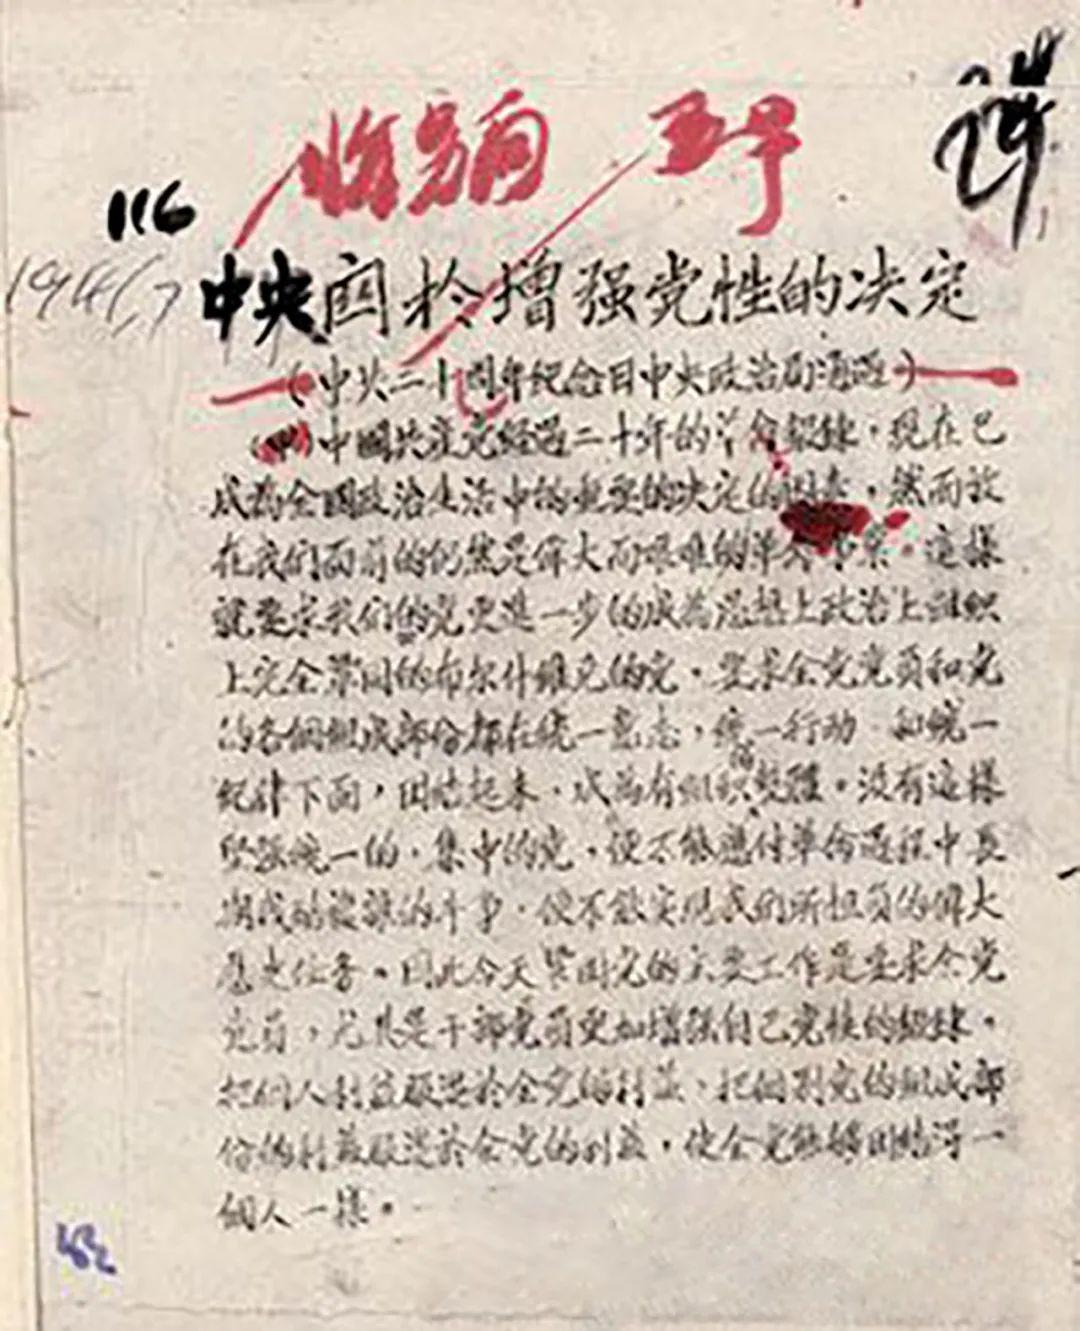 116
1941.7
中央関於增强党性的决定
(中共二十週年纪念日中央政治局通过)
(一)中國共產党经过二十年的革命鍛鍊，现在已
成為全國政治生活中的重要的决定的因素，然而放
在我们面前的仍然是偉大而艰难的革命事業。這樣
就要求我们的党更進一步的成為思想上政治上组织
上完全鞏固的布尔什維克的党。要求全党党員和党
的各個组成部份都在统一意志，统一行动 和统一
纪律下面，团结起来，成為有组织的整體。没有這樣
坚强统一的，集中的党，便不能應付革命过程中長
期残酷複雜的斗争，便不能实现我们所担負的偉大
歷史任务。因此今天鞏固党的主要工作是要求全党
党員，尤其是干部党員更加增强自己党性的鍛鍊，
把個人利益服從於全党的利益，把個别党的组成部
份的利益服從於全党的利益，使全党能够团结得一
個人一樣。